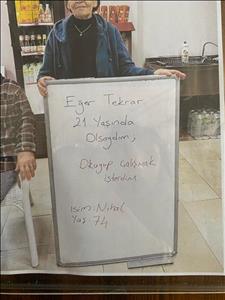 Eğer Tekrar
21 Yaşında
Olsaydım;
Okuyup Çalışmak
isterdim
isim: Nihal
Yaş: 74